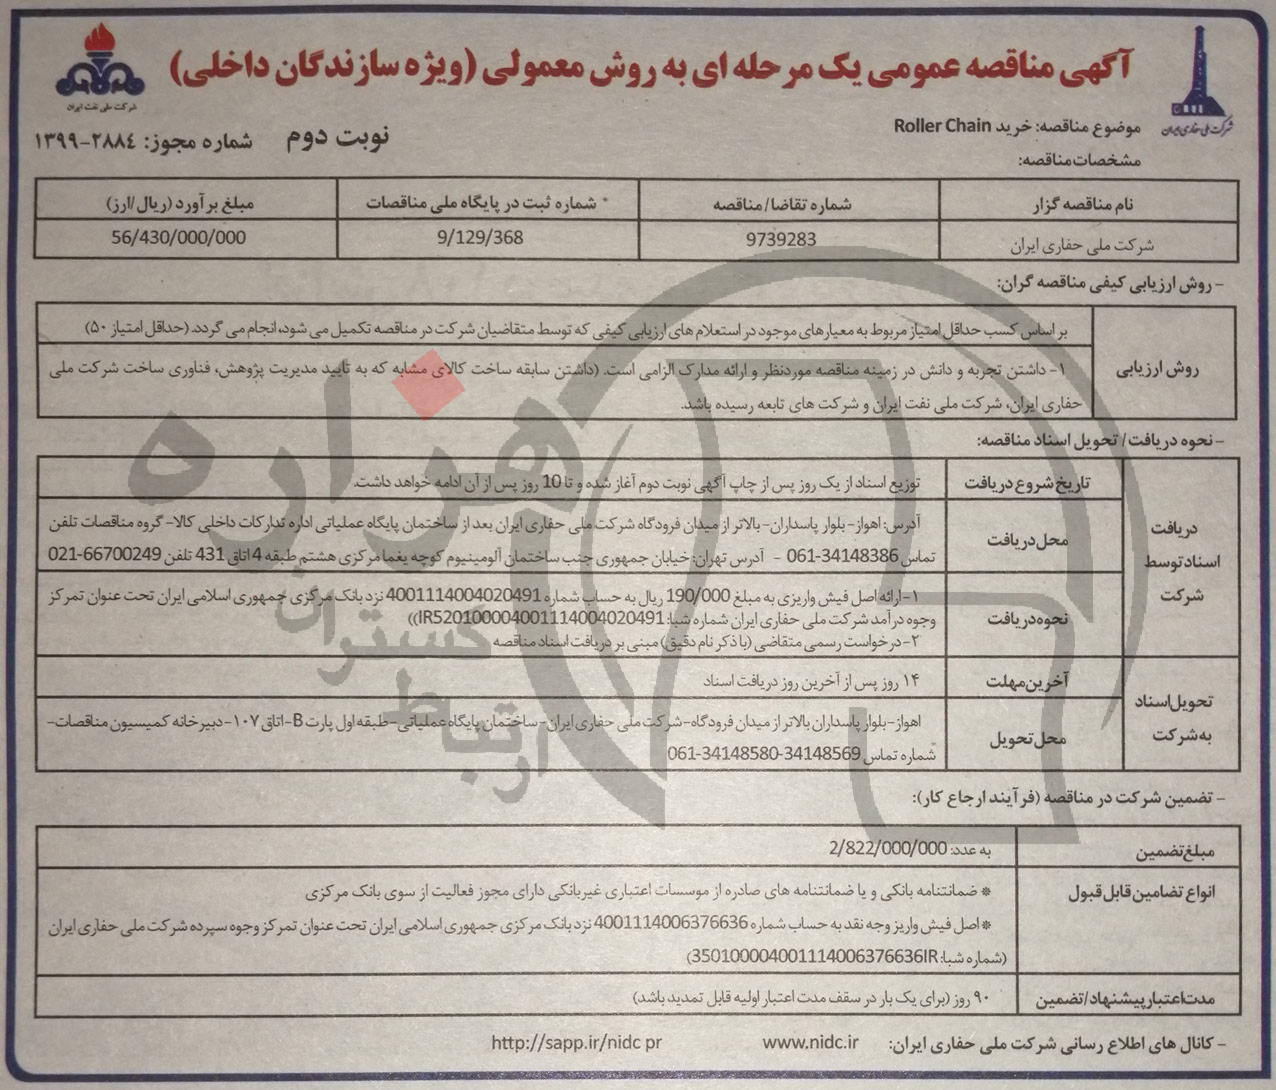 آگهی مناقصه عمومی یک مرحله ای به روش معمولی (ویژه سازندگان داخلی)
شرکت ملی نفت ایران
شرکت ملی حفاری ایران
موضوع مناقصه: خرید Roller Chain
نوبت دوم
شماره مجوز: ۲۸۸۴-۱۳۹۹
مشخصات مناقصه:
نام مناقصه گزار
شماره تقاضا/مناقصه
* شماره ثبت در پایگاه ملی مناقصات
مبلغ برآورد (ریال/ارز)
شرکت ملی حفاری ایران
9739283
9/129/368
56/430/000/000
- روش ارزیابی کیفی مناقصه گران:
روش ارزیابی
بر اساس کسب حداقل امتیاز مربوط به معیارهای موجود در استعلام های ارزیابی کیفی که توسط متقاضیان شرکت در مناقصه تکمیل می شود، انجام می گردد. (حداقل امتیاز ۵۰)
۱- داشتن تجربه و دانش در زمینه مناقصه موردنظر و ارائه مدارک الزامی است. (داشتن سابقه ساخت کالای مشابه که به تایید مدیریت پژوهش، فناوری ساخت شرکت ملی
حفاری ایران، شرکت ملی نفت ایران و شرکت های تابعه رسیده باشد.
- نحوه دریافت/ تحویل اسناد مناقصه:
دریافت
اسناد توسط
شرکت
تاریخ شروع دریافت
توزیع اسناد از یک روز پس از چاپ آگهی نوبت دوم آغاز شده و تا 10 روز پس از آن ادامه خواهد داشت.
محل دریافت
آدرس: اهواز- بلوار پاسداران- بالاتر از میدان فرودگاه شرکت ملی حفاری ایران بعد از ساختمان پایگاه عملیاتی اداره تدارکات داخلی کالا- گروه مناقصات تلفن
تماس 34148386-061 - آدرس تهران: خیابان جمهوری جنب ساختمان آلومینیوم کوچه یغما مرکزی هشتم طبقه 4 اتاق 431 تلفن 66700249-021
نحوه دریافت
۱- ارائه اصل فیش واریزی به مبلغ 190/000 ریال به حساب شماره 4001114004020491 نزد بانک مرکزی جمهوری اسلامی ایران تحت عنوان تمرکز
وجوه درآمد شرکت ملی حفاری ایران شماره شبا: IR520100004001114004020491))
۲- درخواست رسمی متقاضی (با ذکر نام دقیق) مبنی بر دریافت اسناد مناقصه
تحویل اسناد
به شرکت
آخرین مهلت
۱۴ روز پس از آخرین روز دریافت اسناد
محل تحویل
اهواز- بلوار پاسداران بالاتر از میدان فرودگاه- شرکت ملی حفاری ایران- ساختمان پایگاه عملیاتی- طبقه اول پارت B- اتاق ۱۰۷- دبیرخانه کمیسیون مناقصات-
شماره تماس 34148569-34148580-061
- تضمین شرکت در مناقصه (فرآیند ارجاع کار):
مبلغ تضمین
به عدد: 2/822/000/000
انواع تضامین قابل قبول
* ضمانتنامه بانکی و یا ضمانتنامه های صادره از موسسات اعتباری غیربانکی دارای مجوز فعالیت از سوی بانک مرکزی
* اصل فیش واریز وجه نقد به حساب شماره 4001114006376636 نزد بانک مرکزی جمهوری اسلامی ایران تحت عنوان تمرکز وجوه سپرده شرکت ملی حفاری ایران
(شماره شبا: 350100004001114006376636IR)
مدت اعتبار پیشنهاد/ تضمین
۹۰ روز (برای یک بار در سقف مدت اعتبار اولیه قابل تمدید باشد)
- کانال های اطلاع رسانی شرکت ملی حفاری ایران: www.nidc.ir http://sapp.ir/nidc pr
هزاره
گستران
ارتباط